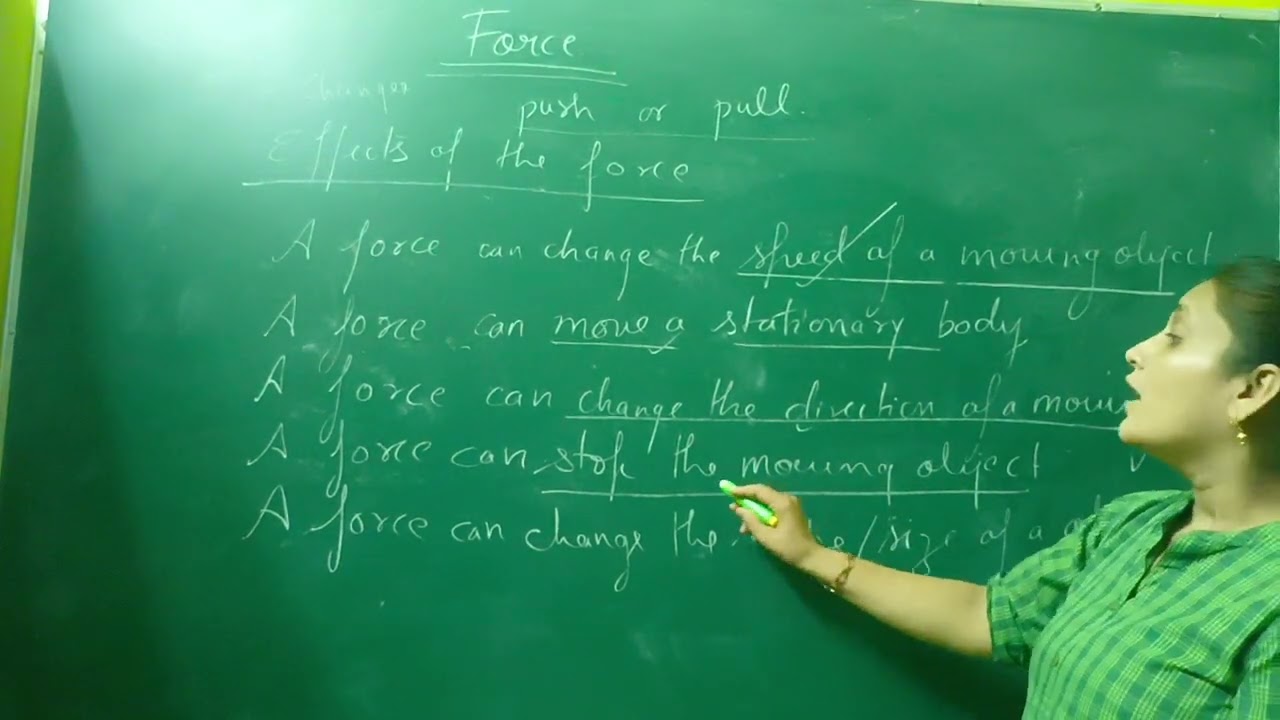 Force
Changes
push or pull.
Effects of the force
A force can change the speed of a moving object
A force can move a stationary body
A force can change the direction of a
A force can stop the moving object
A force can change the /size of a